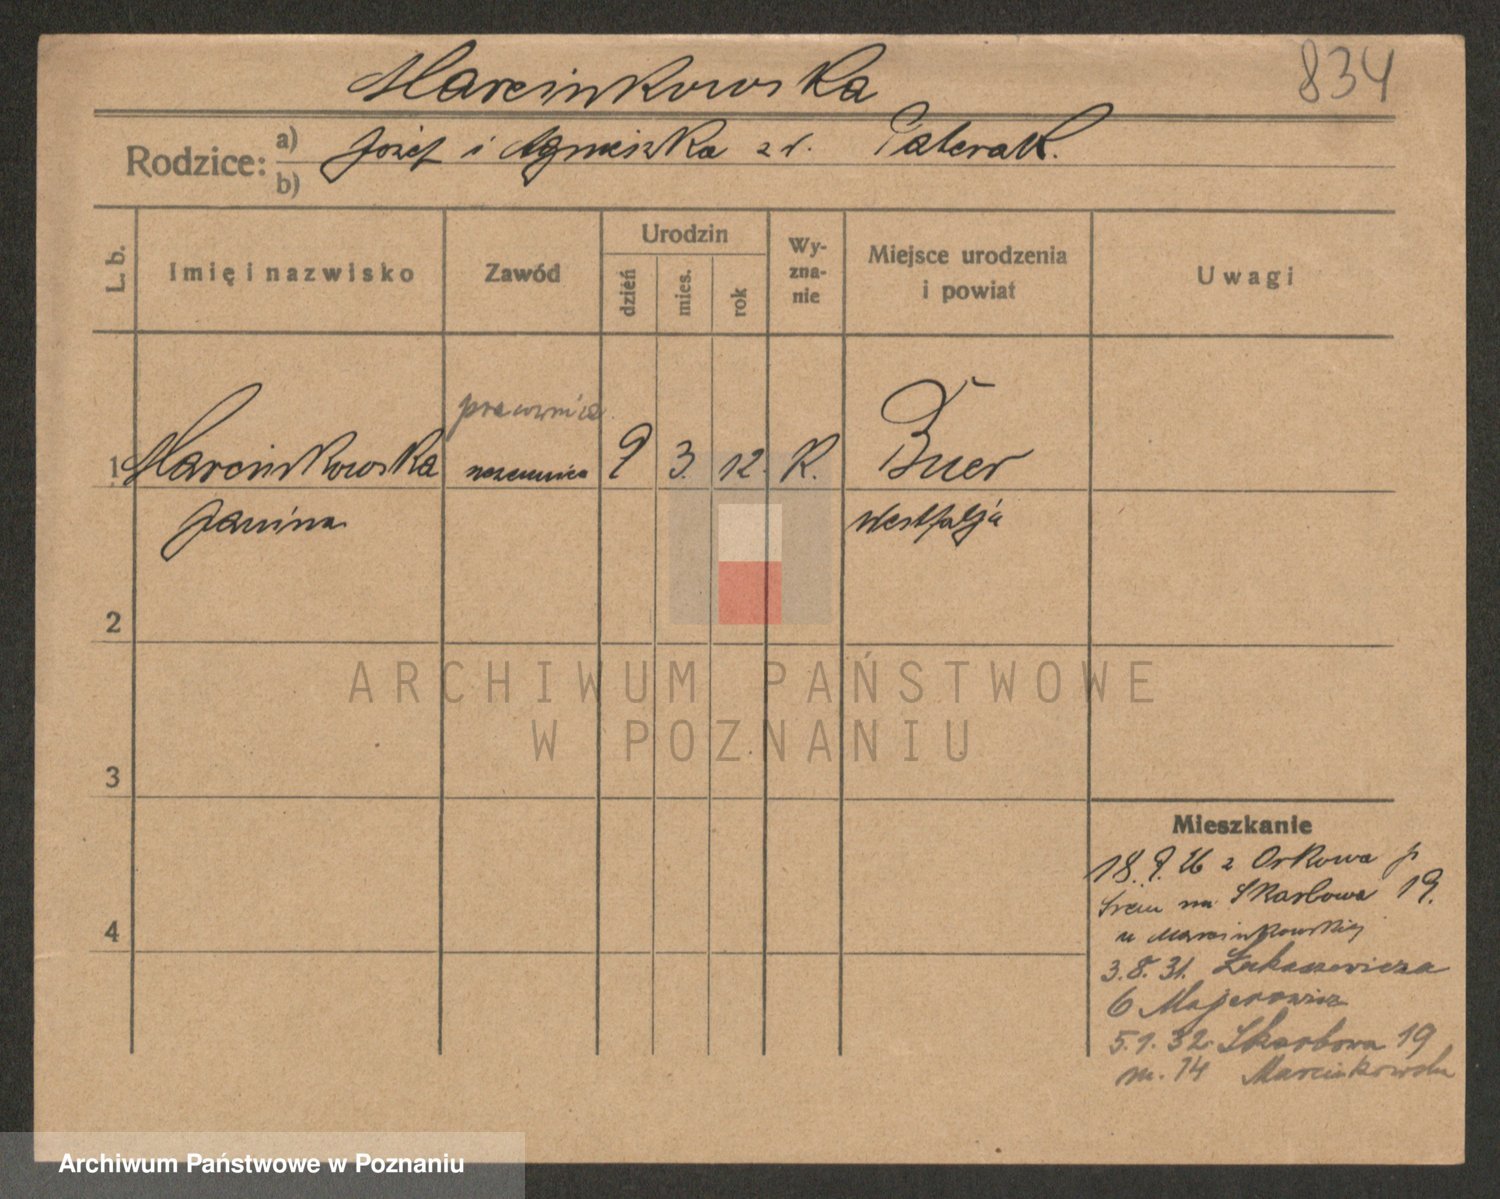 834
Marcinkowska
Rodzice: a) Józef i Agnieszka z d. Paterak.
b)
L. b.
Imię i nazwisko
Zawód
Urodzin
dzień
mies.
rok
Wy-
zna-
nie
Miejsce urodzenia
i powiat
Uwagi
pracownica
1 Marcinkowska uczennica 9 3. 12. K. Buer
Janina Westfalja
2
3
4
Mieszkanie
18. 9. 26 z Orkowa p
Śrem na Skarbowa 19.
u Marcinkowskiej
3. 8. 31. Łukaszewicza
6 Majerowicz
5. 1. 32. Skarbowa 19
m. 14 Marcinkowska
ARCHIWUM PAŃSTWOWE
W POZNANIU
Archiwum Państwowe w Poznaniu